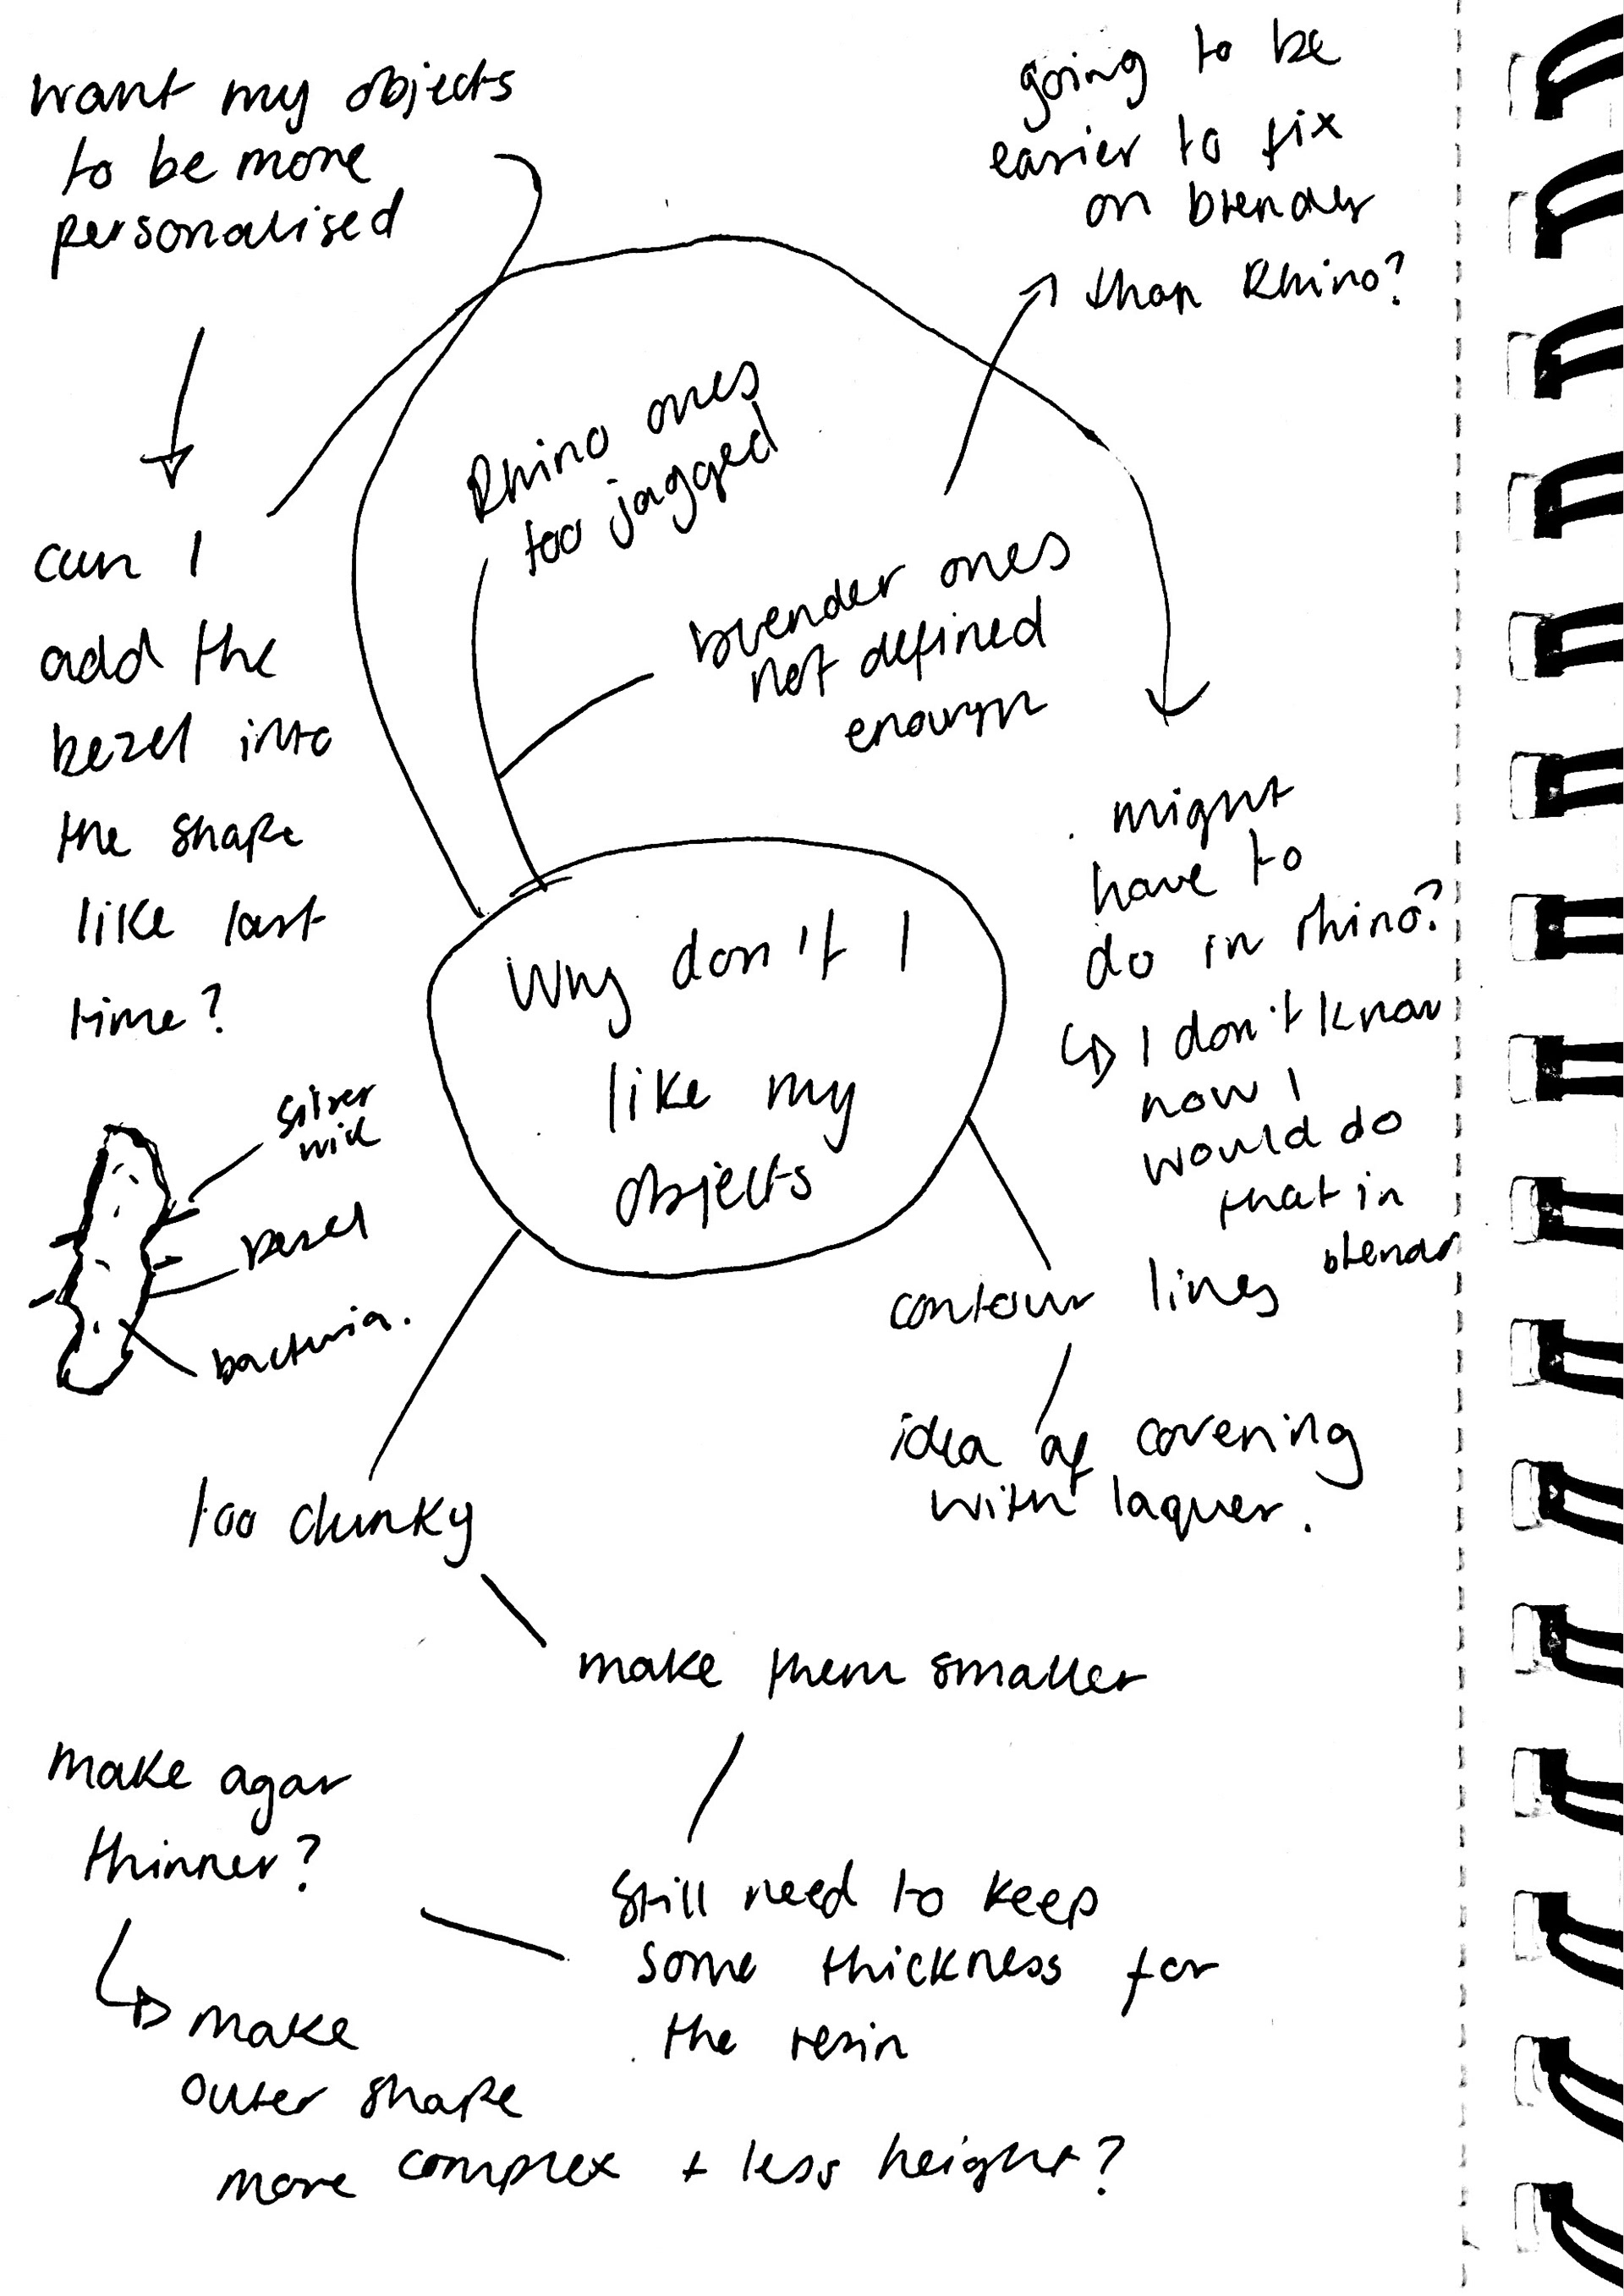 want my objects
to be more
personalised
going to be
easier to fix
on blender
than Rhino?
Rhino ones
too jagged
blender ones
not defined
enough
can I
add the
bezel into
the shape
like last
time?
might
have to
do in rhino?
I don't know
how I
would do
that in
blender
Why don't I
like my
objects
silver
bezel
bacteria.
contour lines
idea of covering
with laquer.
too clunky
make them smaller
still need to keep
some thickness for
the resin
make agar
thinner?
make
outer shape
more complex + less height?